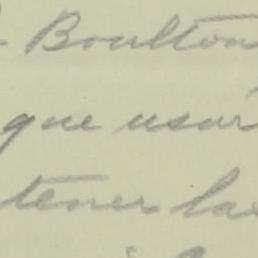 Boulton
que usar
tener la